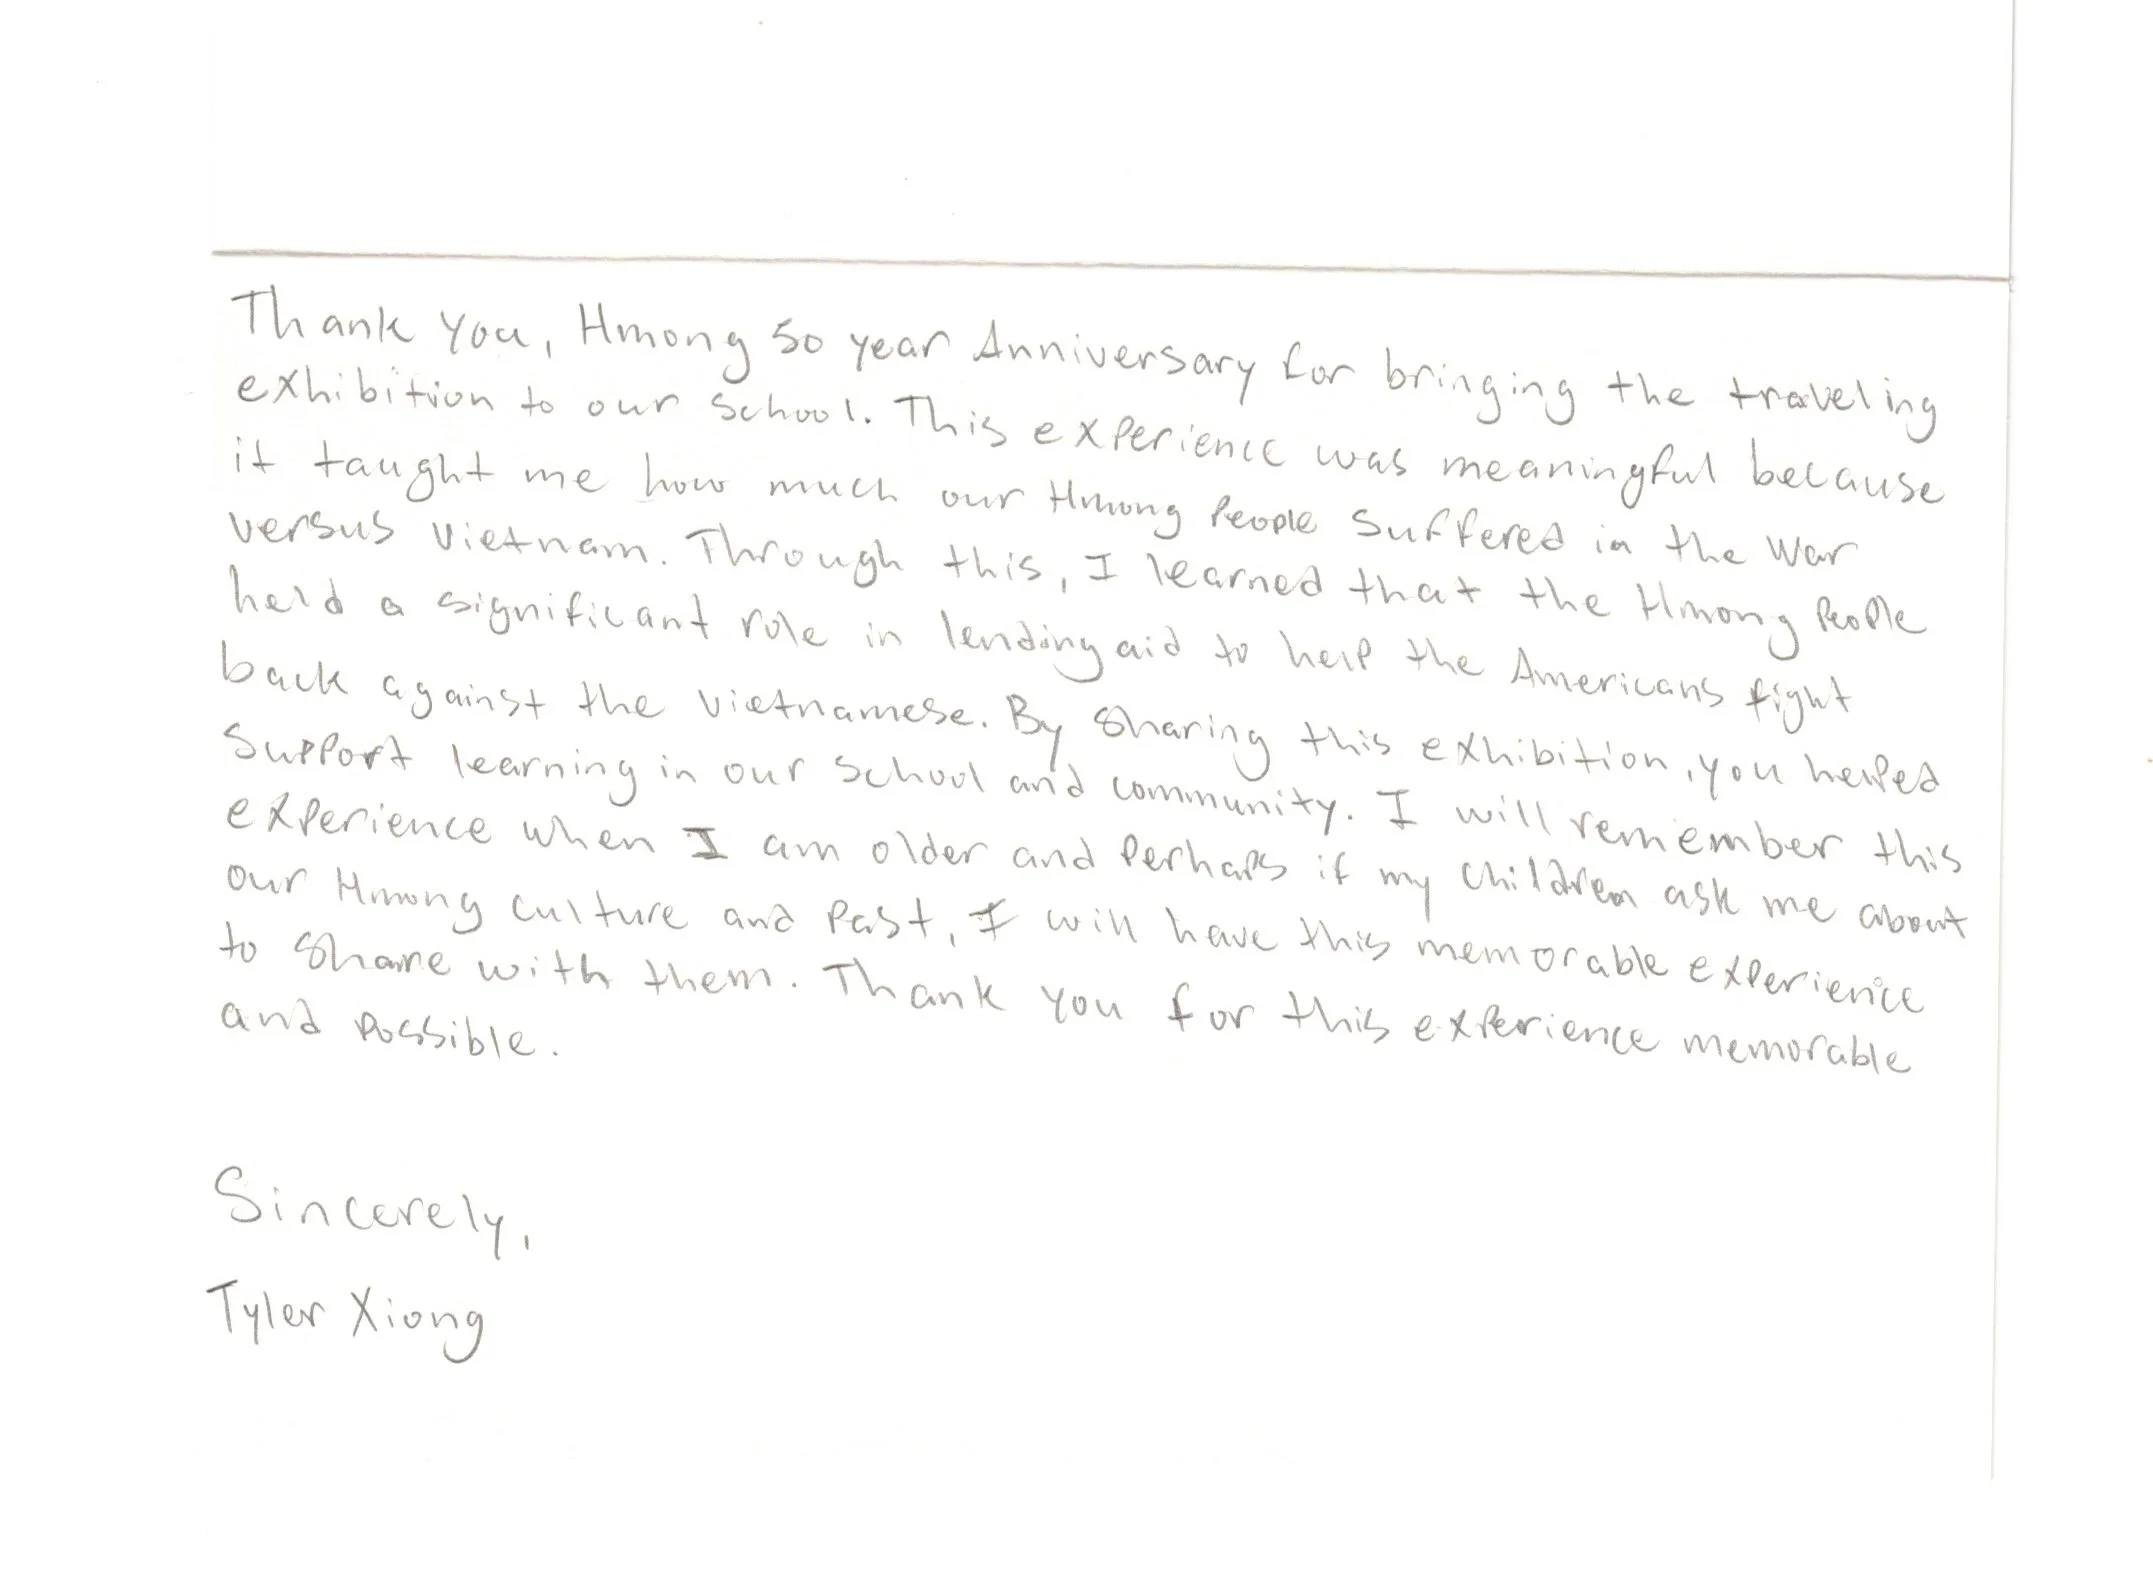 Thank you, Hmong 50 year Anniversary for bringing the traveling
exhibition to our school. This experience was meaningful because
it taught me how much our Hmong People suffered in the War
versus Vietnam. Through this, I learned that the Hmong People
held a significant role in lending aid to help the Americans fight
back against the Vietnamese. By sharing this exhibition, you helped
support learning in our school and community. I will remember this
experience when I am older and perhaps if my children ask me about
our Hmong culture and past, I will have this memorable experience
to share with them. Thank you for this experience memorable
and possible.
Sincerely,
Tyler Xiong